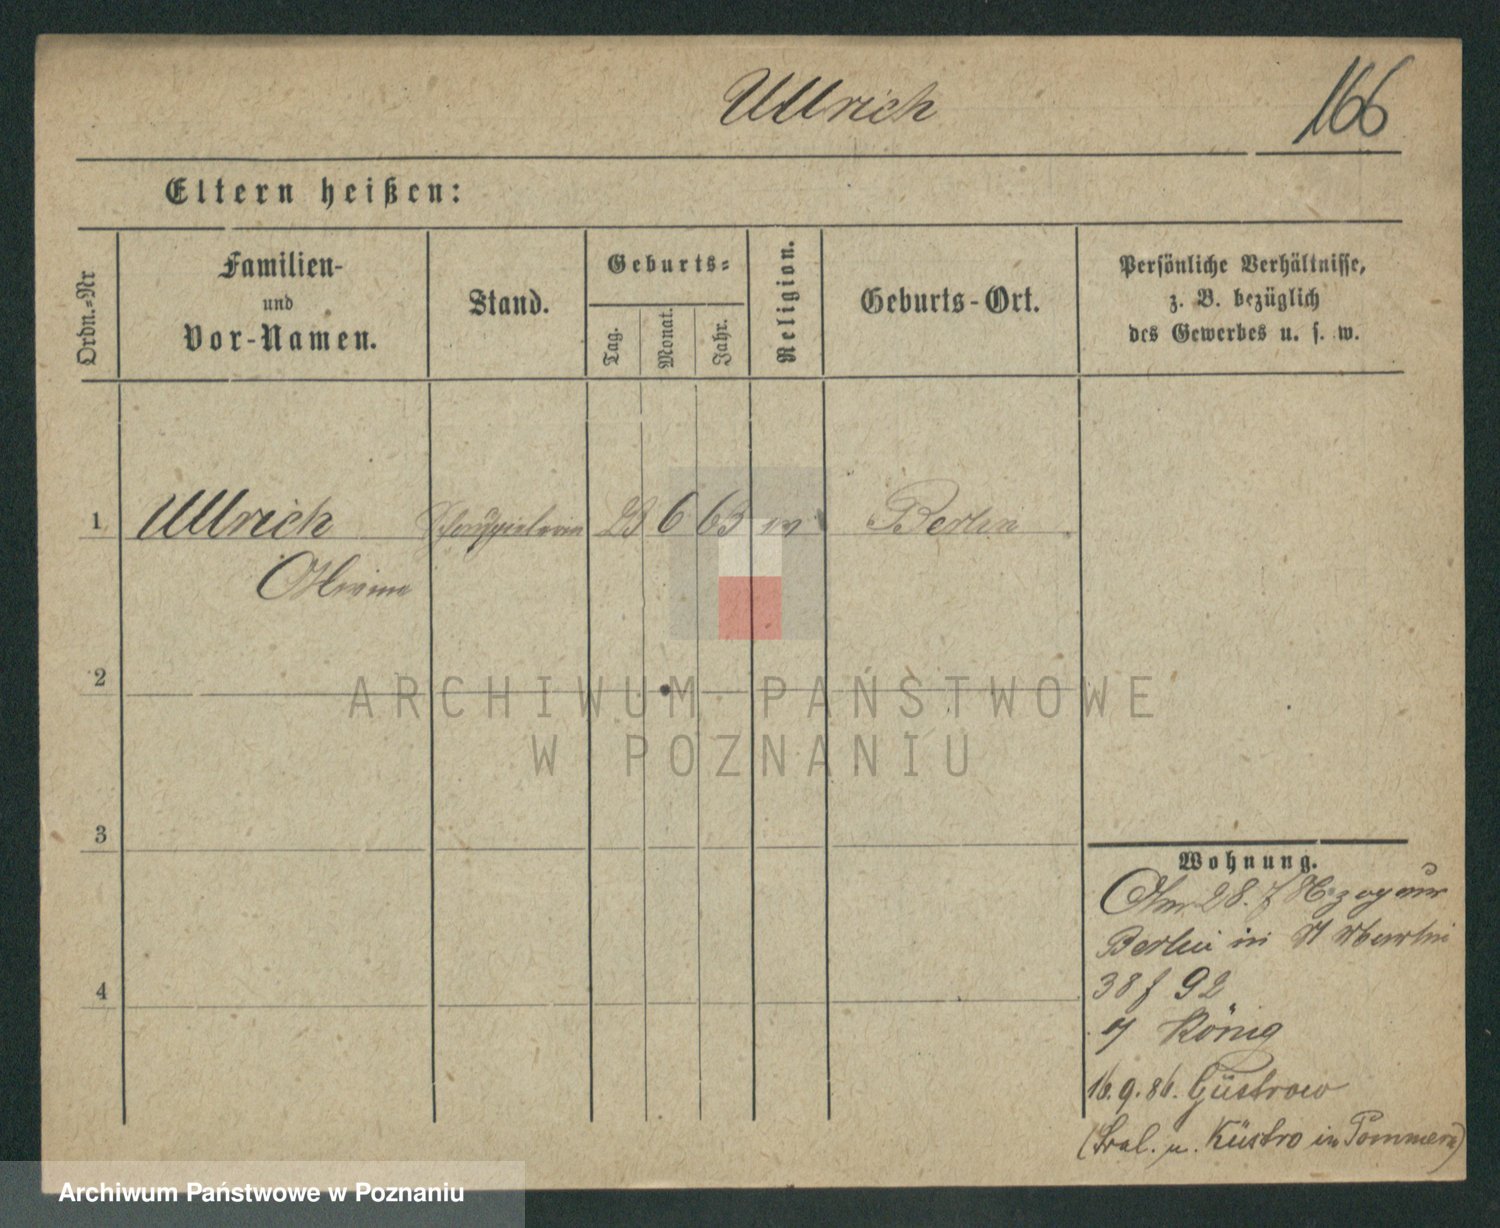 Ullrich
166
Eltern heißen:
Ordn.-Nr
Familien-
und
Vor-Namen.
Stand.
Geburts-
Tag.
Monat.
Jahr.
Religion.
Geburts-Ort.
Persönliche Verhältnisse,
z. B. bezüglich
des Gewerbes u. s. w.
1
Ullrich
Schauspielerin
23 6 63
Berlin
2
ARCHIWUM PAŃSTWOWE
W POZNANIU
3
Wohnung.
28. 7
Berlin in St Martin
38 f 92
König
4
16.9.86. Güstrow
Küstro in Pommern)
Archiwum Państwowe w Poznaniu